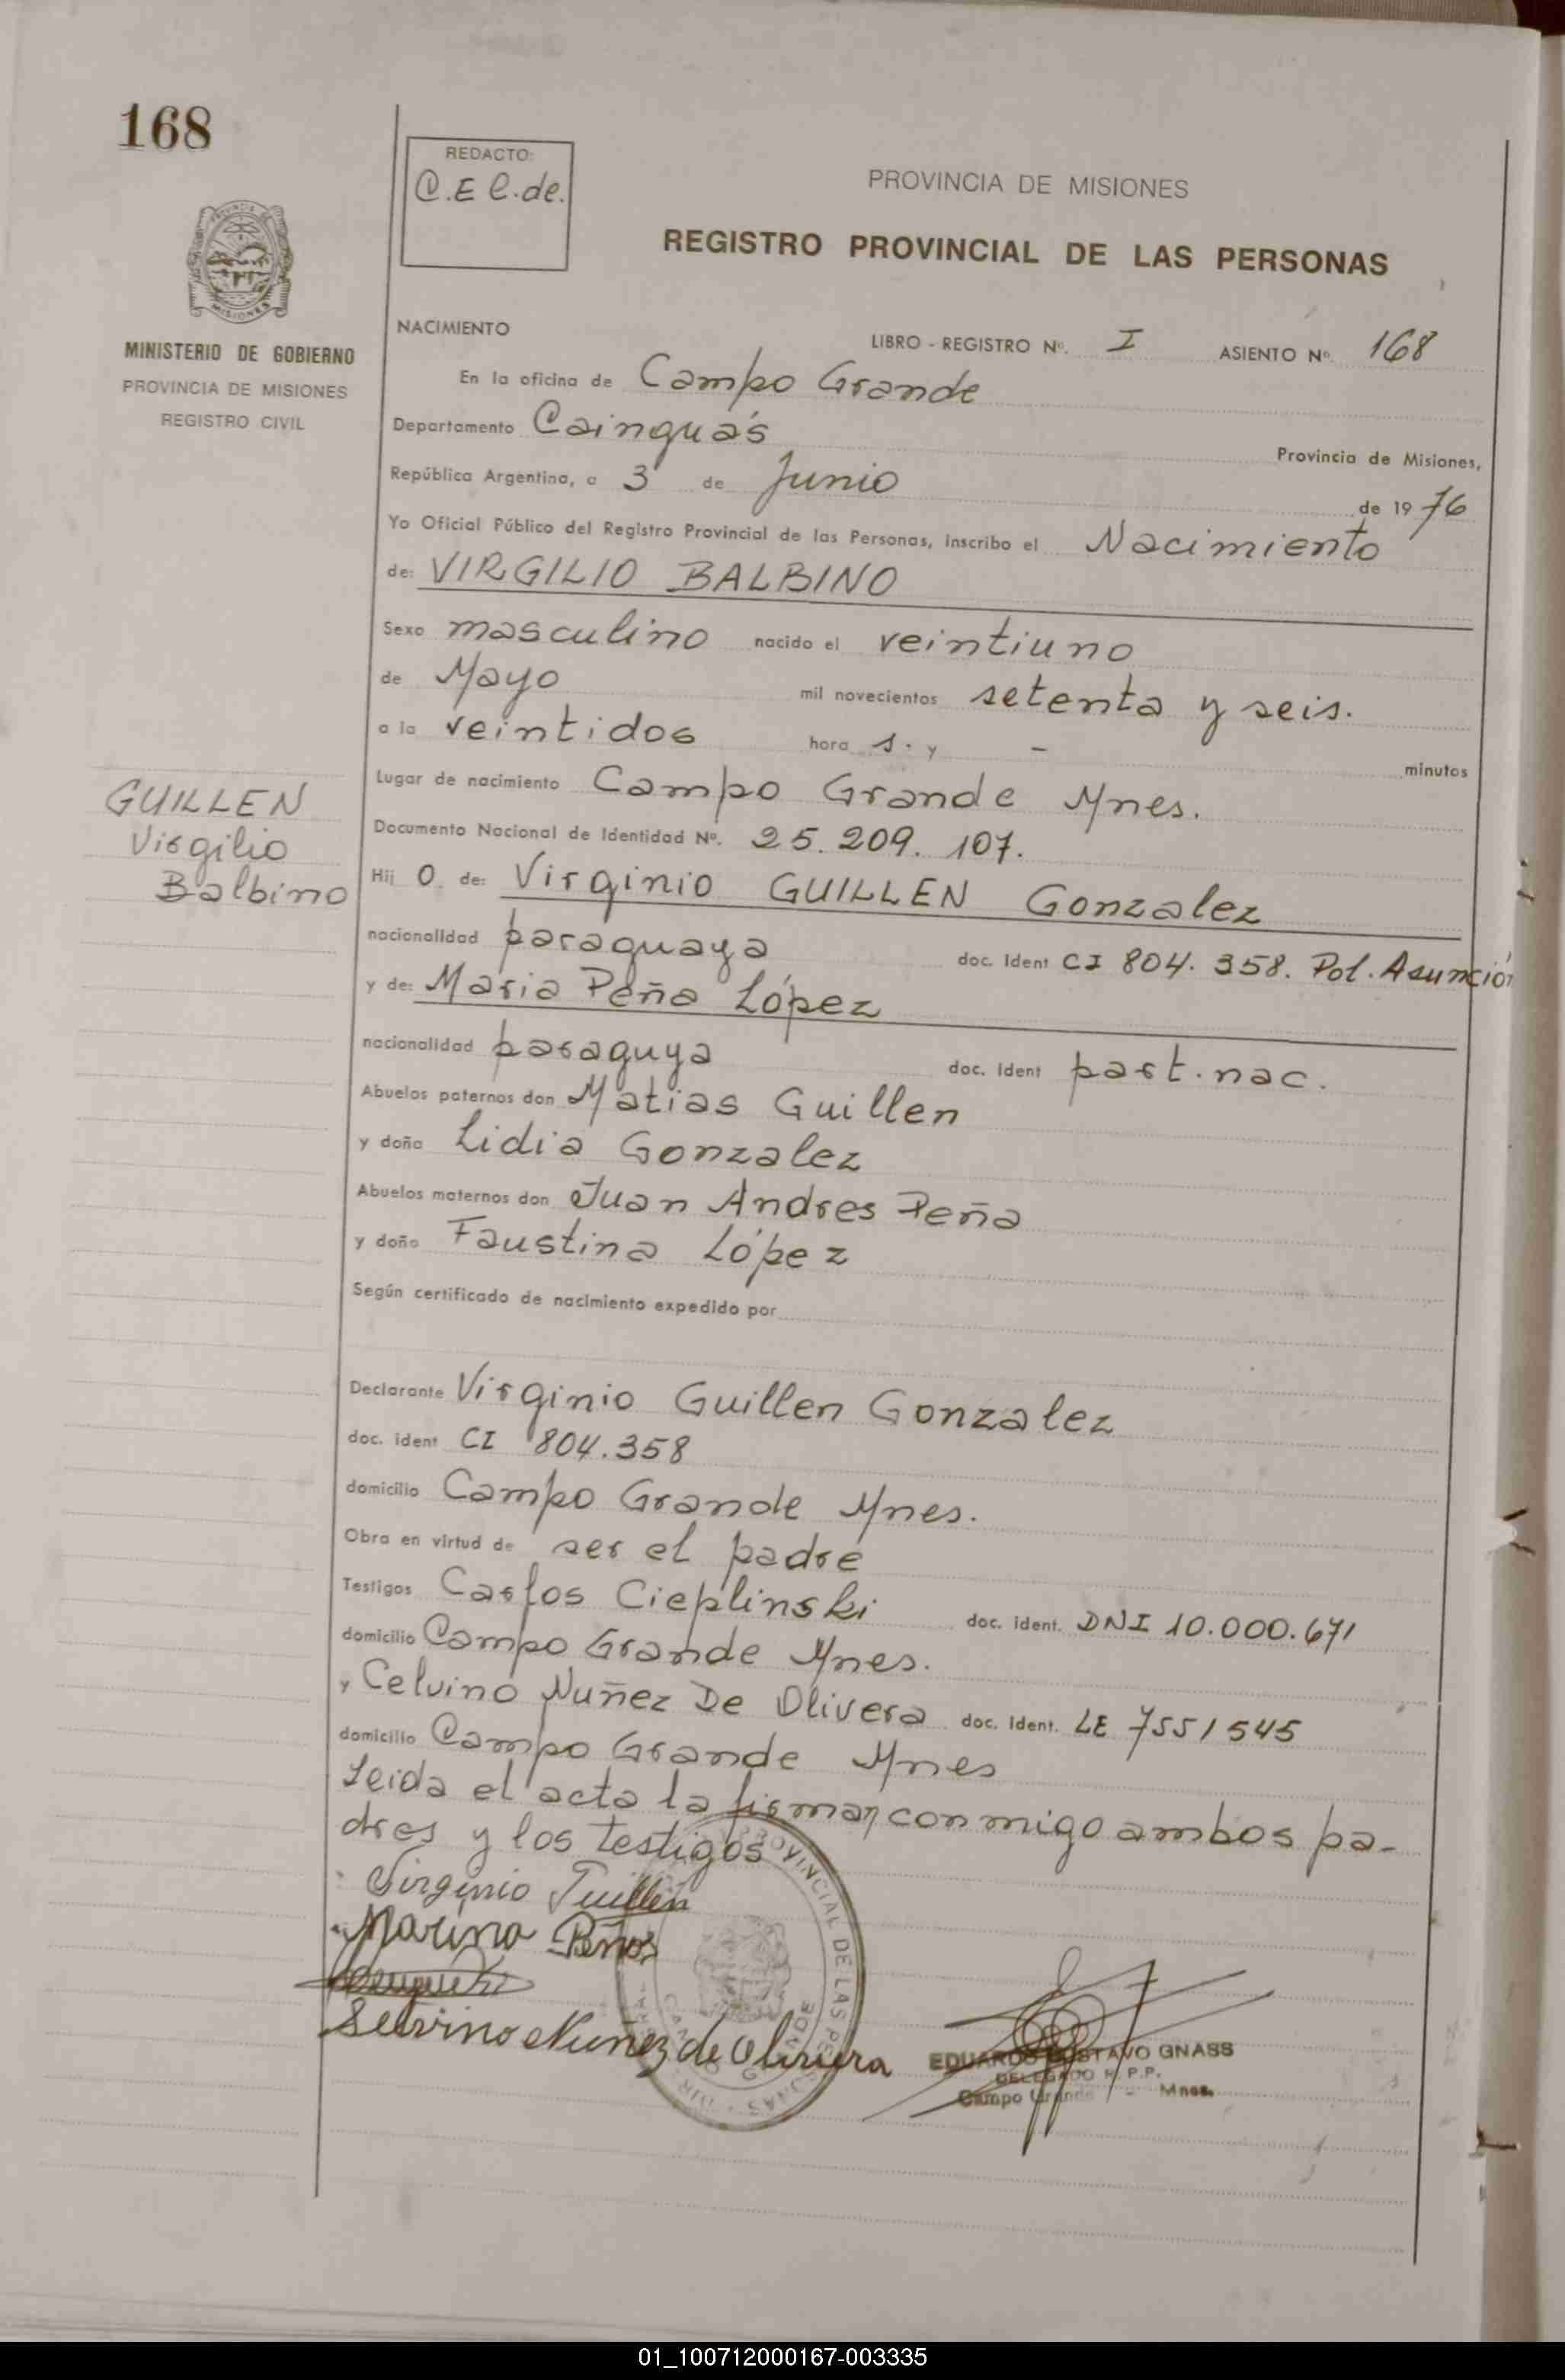 168
REDACTO:
C.E C.de.
PROVINCIA DE MISIONES
REGISTRO PROVINCIAL DE LAS PERSONAS
MISIONES
MINISTERIO DE GOBIERNO
PROVINCIA DE MISIONES
REGISTRO CIVIL
NACIMIENTO LIBRO - REGISTRO Nº. I ASIENTO Nº. 168
En la oficina de Campo Grande
Departamento Cainguás Provincia de Misiones,
República Argentina, a 3 de Junio de 1976
Yo Oficial Público del Registro Provincial de las Personas, inscribo el Nacimiento
de: VIRGILIO BALBINO
Sexo masculino nacido el veintiuno
de Mayo mil novecientos setenta y seis.
a la veintidos hora s. y - minutos
Lugar de nacimiento Campo Grande Mnes.
GUILLEN
Virgilio
Balbino
Documento Nacional de Identidad Nº. 25.209.107.
Hij o de: Virginio GUILLEN Gonzalez
nacionalidad paraguaya doc. Ident CI 804.358. Pol. Asunción
y de: Maria Peña López
nacionalidad paraguya doc. Ident part. nac.
Abuelos paternos don Matias Guillen
y doña Lidia Gonzalez
Abuelos maternos don Juan Andres Peña
y doña Faustina López
Según certificado de nacimiento expedido por
Declarante Virginio Guillen Gonzalez
doc. ident CI 804.358
domicilio Campo Grande Mnes.
Obra en virtud de ser el padre
Testigos Carlos Cieplinski doc. ident. DNI 10.000.671
domicilio Campo Grande Mnes.
y Celvino Nuñez De Olivera doc. Ident. LE 7551545
domicilio Campo Grande Mnes
Leida el acta la firman conmigo ambos pa-
dres y los testigos
Virginio Guillen
Marina Peña
Selvino Nuñez de Olivera
PROVINCIAL DE LAS PERSONAS
EDUARDO GUSTAVO GNASS
DELEGADO R.P.P.
Campo Grande - Mnes.
01_100712000167-003335